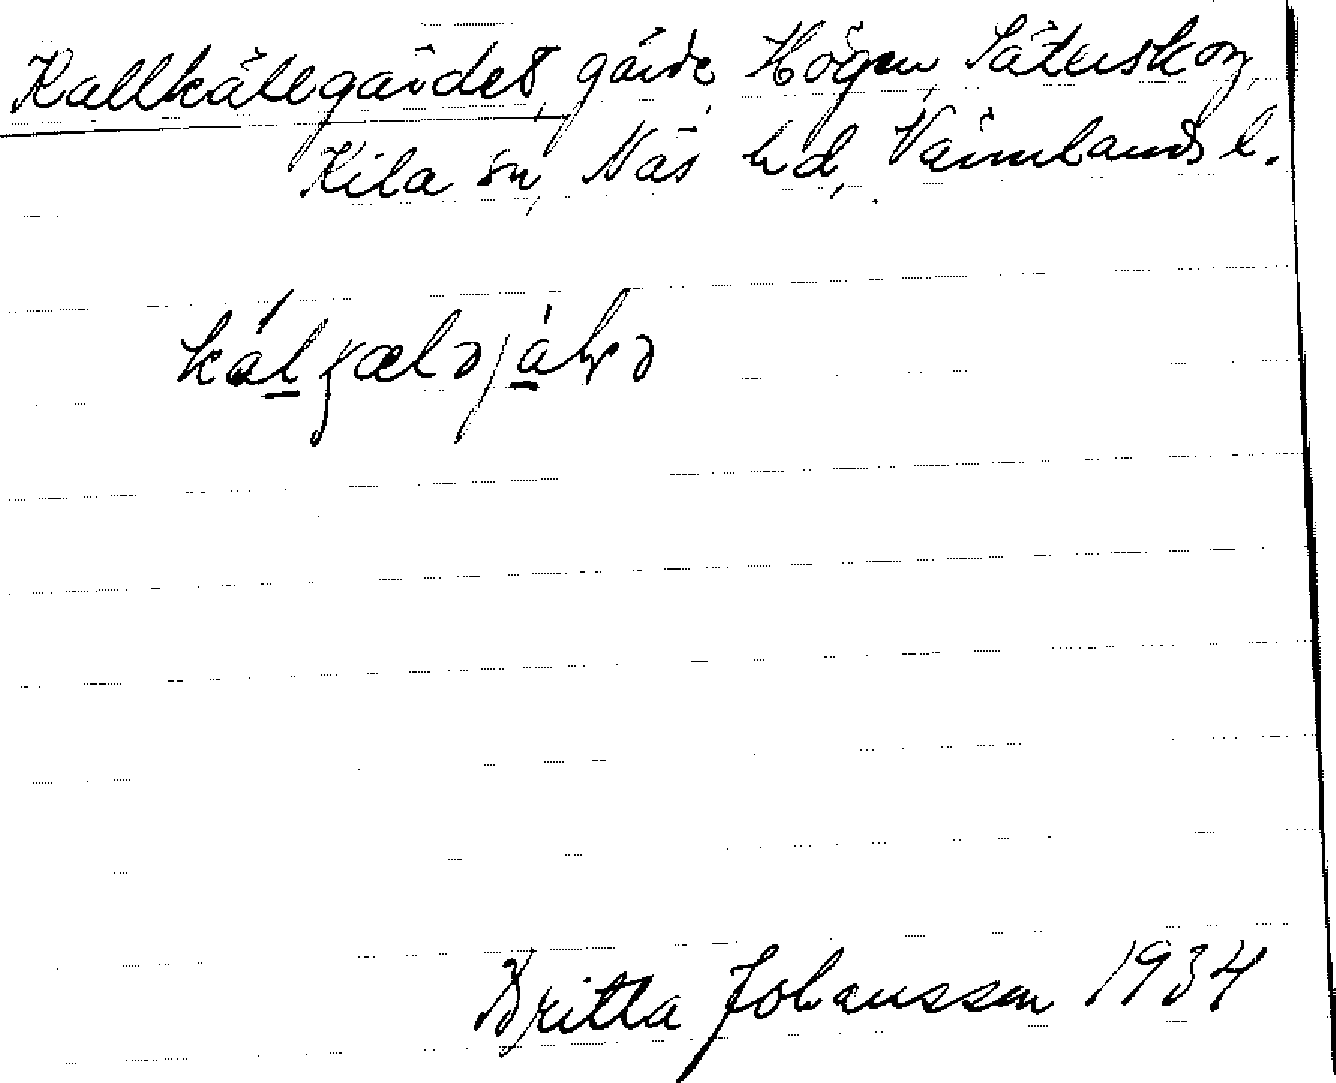 Kallkällegärdet, gärde, Högen, Säterskog,
Kila sn, Näs hd, Värmlands l.
Britta Johansson 1934